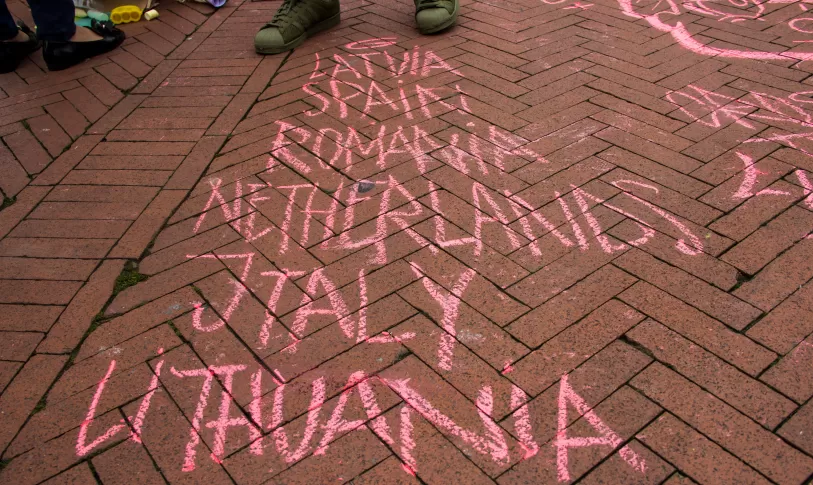 LATVIA
SPAIN
ROMANIA
NETHERLANDS
ITALY
LITHUANIA